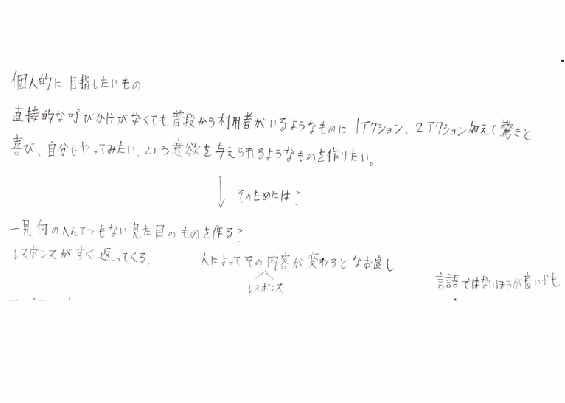 個人的に目指したいもの
直接的な呼びかけがなくても普段から利用者がいるようなものに1アクション、2アクション加えて驚きと
喜び、自分もやってみたい、という意欲を与えられるようなものを作りたい。
そのためには?
一見何のへんてつもない見た目のものを作る?
レスポンスがすぐ返ってくる。 人によってその内容が変わるとなお良し
レスポンス
言語ではないほうが良いかも